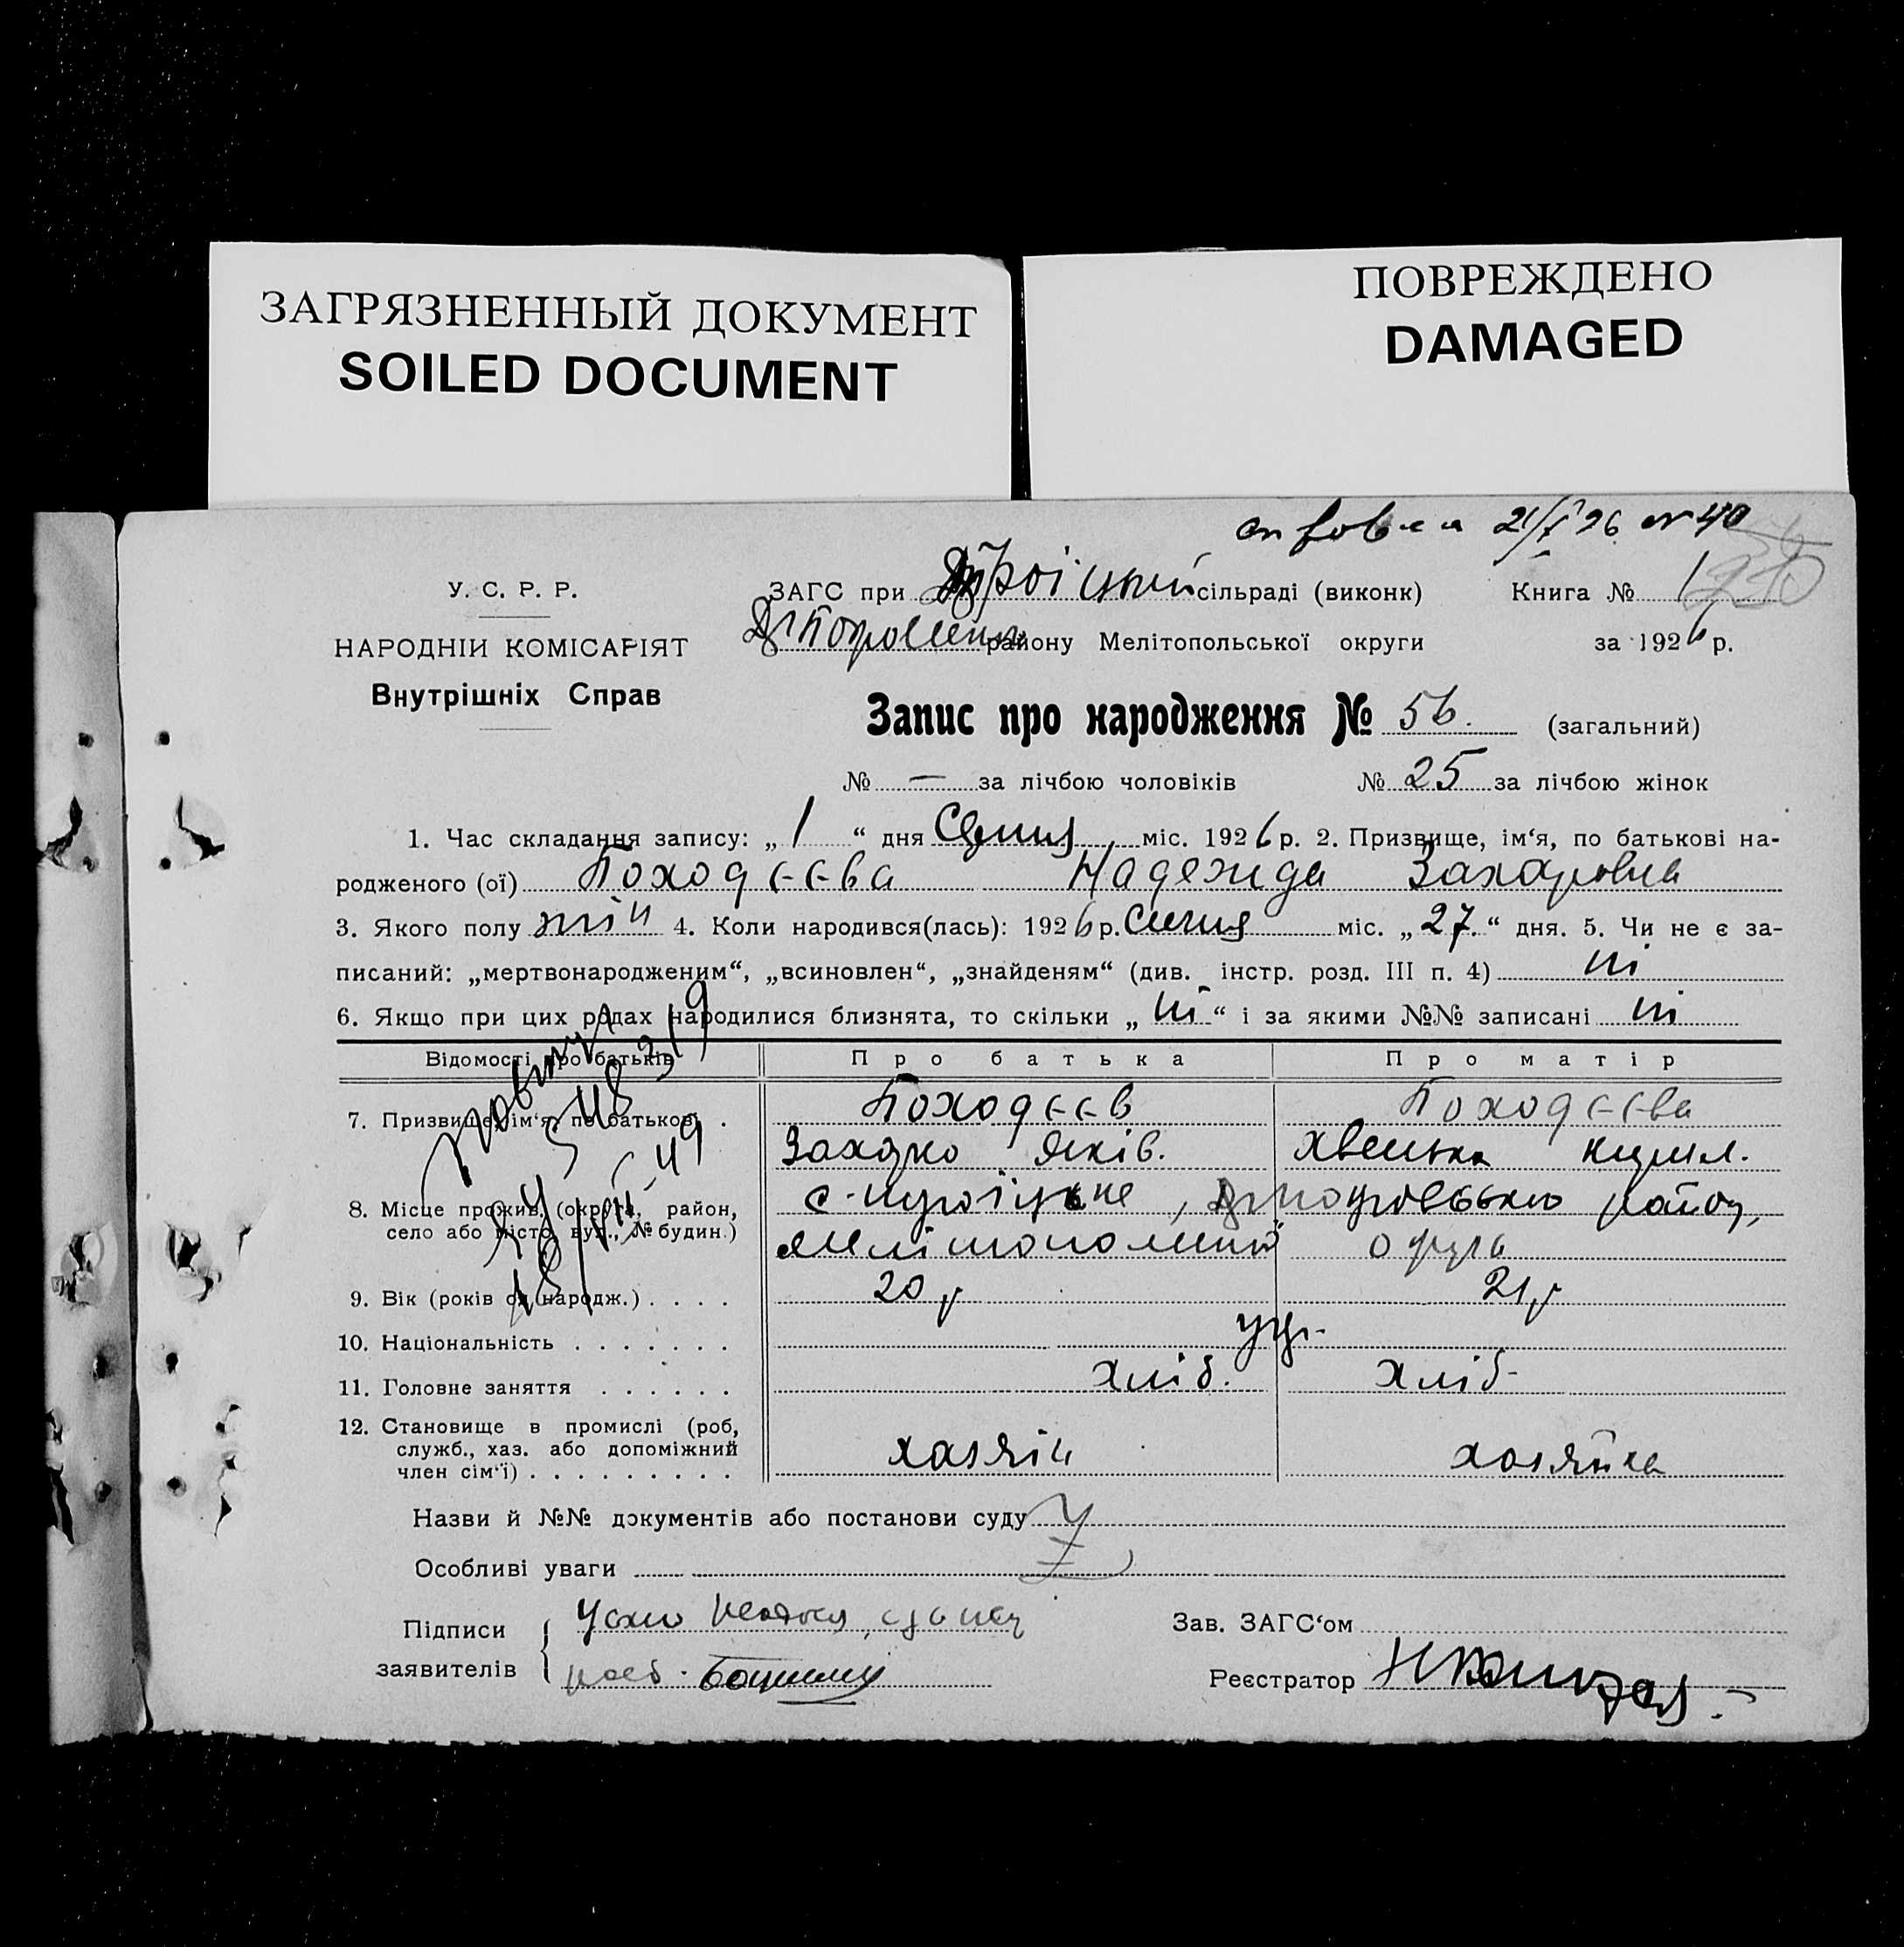 ЗАГРЯЗНЕННЫЙ ДОКУМЕНТ
SOILED DOCUMENT
ПОВРЕЖДЕНО
DAMAGED
21/V 26 № 40
У. С. Р. Р.
НАРОДНІЙ КОМІСАРІЯТ
Внутрішніх Справ
ЗАГС при Троіцькій сільраді (виконк) Книга № 1
району Мелітопольської округи за 1926 р.
Запис про народження № 56. (загальний)
№ — за лічбою чоловіків № 25 за лічбою жінок
1. Час складання запису: „1“ дня Січня міс. 1926 р. 2. Призвище, ім‘я, по батькові на-
родженого (ої) Походєєва Надежда Захаровна
3. Якого полу жін 4. Коли народився(лась): 1926 р. Січня міс. „27.“ дня. 5. Чи не є за-
писаний: „мертвонародженим“, „всиновлен“, „знайденям“ (див. інстр. розд. III п. 4) ні
6. Якщо при цих родах народилися близнята, то скільки „ні“ і за якими №№ записані ні
Відомості про батьків Про батька Про матір
7. Призвище, ім‘я, по батькові . Походєєв Походєєва
Захарко Яків. Хвенька Кирил.
8. Місце прожив. (округа, район,
село або місто, вул., № будин.)
с. Троїцьке, району,
Мелітопольської округи
9. Вік (років од народж.) . . . . 20 р 21 р
10. Національність . . . . . . . укр.
11. Головне заняття . . . . . . хліб. хліб-
12. Становище в промислі (роб,
служб., хаз. або допоміжний
член сім‘ї) . . . . . . . . . хазяїн хазяйка
Назви й №№ документів або постанови суду
Особливі уваги
Підписи
заявителів
Зав. ЗАГС‘ом
Реєстратор